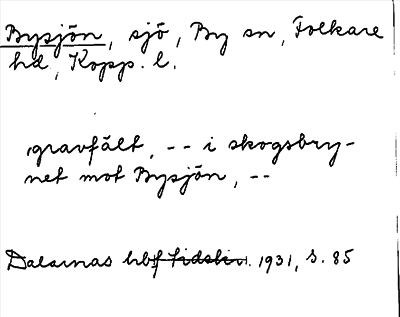 Bysjön, sjö, By sn, Folkare
hd, Kopp. l.
gravfält, -- i skogsbry-
net mot Bysjön, --
Dalarnas hbf tidskr. 1931, s. 85